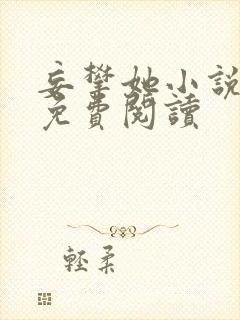 妄攀她小說
免費閱讀
輕柔